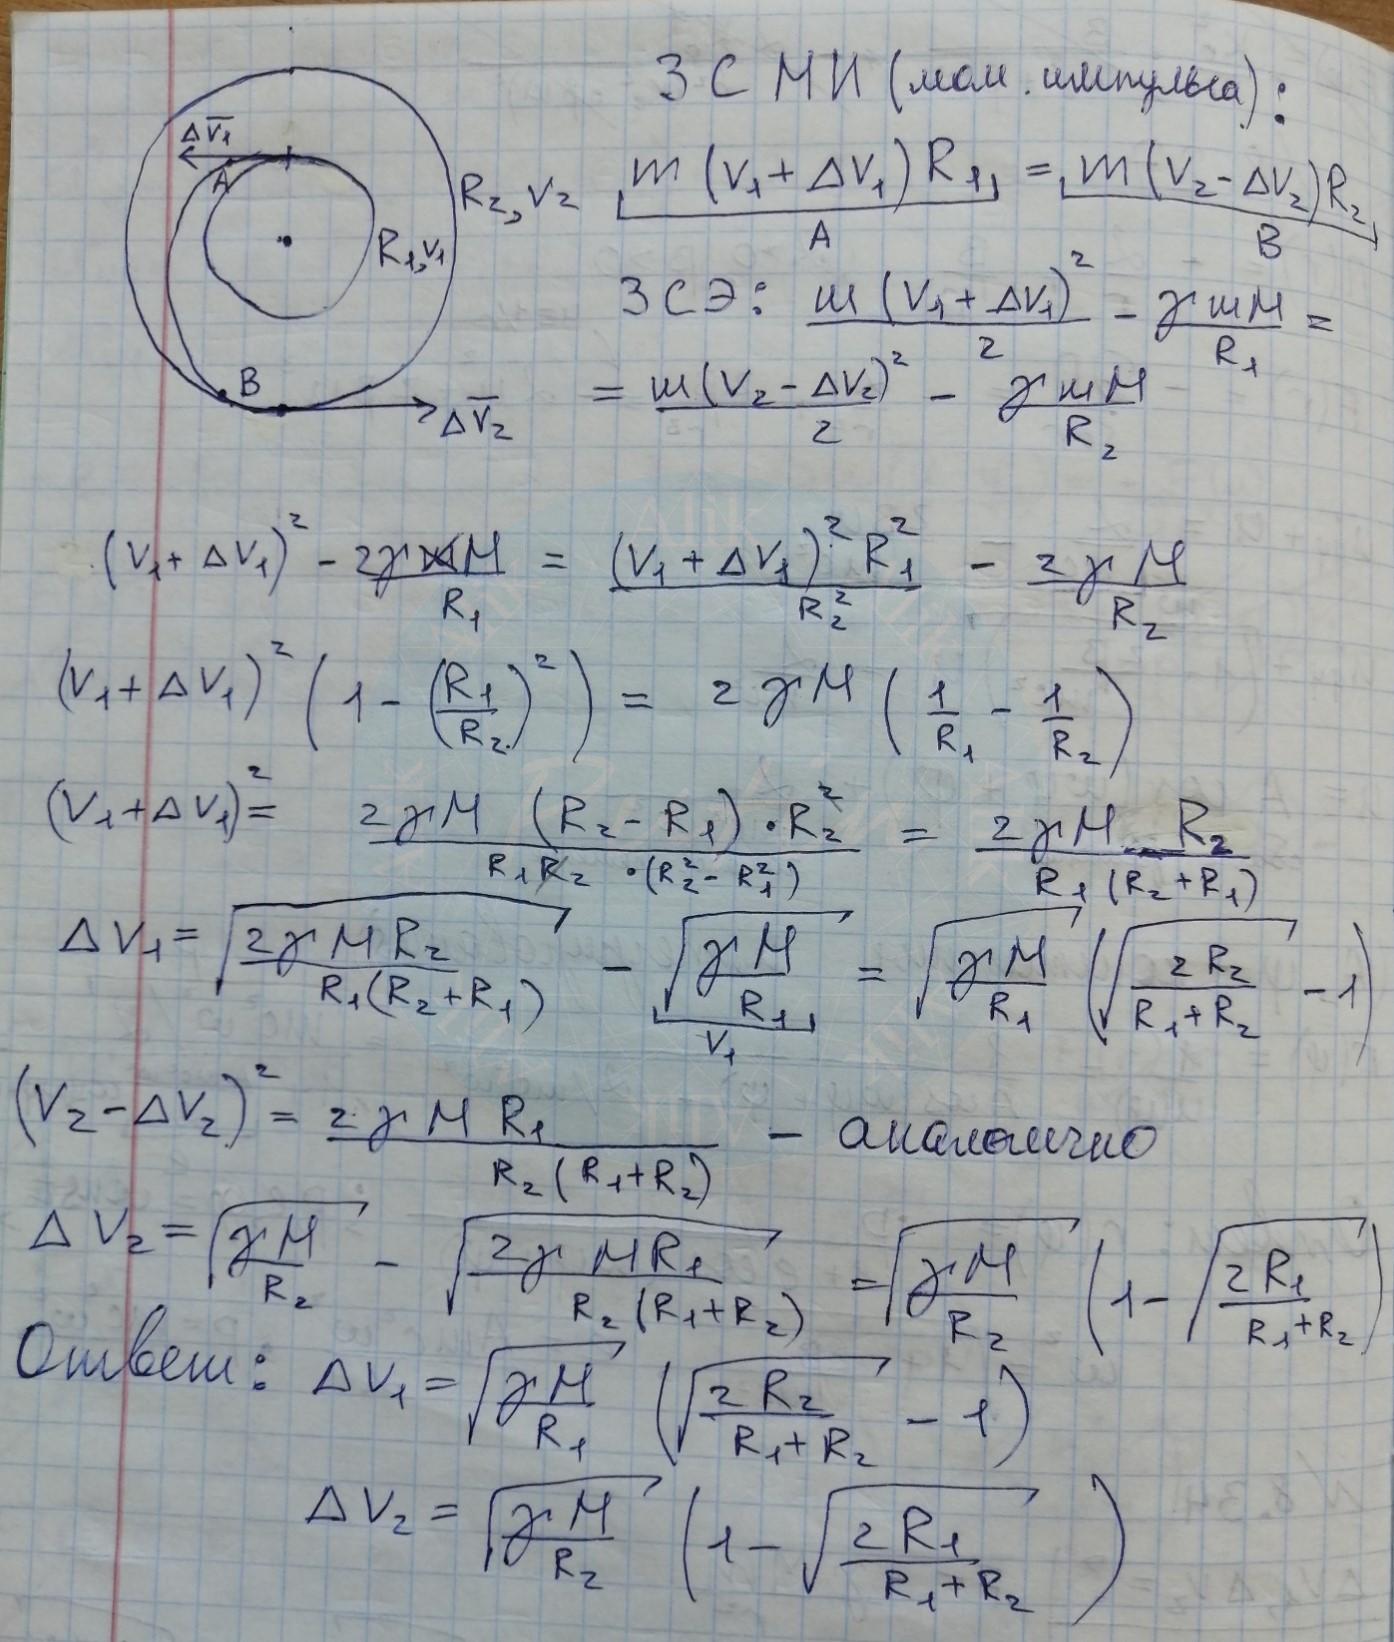 ЗСМИ (мом. импульса):
ΔV₁
A
R₂, V₂
R₁, V₁
B
ΔV₂
m (V₁ + ΔV₁) R₁ = m (V₂ - ΔV₂) R₂
A B
ЗСЭ: m (V₁ + ΔV₁)² / 2 - γmM / R₁ =
= m (V₂ - ΔV₂)² / 2 - γmM / R₂
(V₁ + ΔV₁)² - 2γmM / R₁ = (V₁ + ΔV₁)² R₁² / R₂² - 2γM / R₂
(V₁ + ΔV₁)² (1 - (R₁ / R₂)²) = 2γM (1 / R₁ - 1 / R₂)
(V₁ + ΔV₁)² = 2γM (R₂ - R₁) · R₂² / R₁R₂ · (R₂² - R₁²) = 2γM R₂ / R₁ (R₂ + R₁)
ΔV₁ = √(2γMR₂ / R₁(R₂ + R₁)) - √(γM / R₁) = √(γM / R₁) (√(2R₂ / R₁ + R₂) - 1)
V₁
(V₂ - ΔV₂)² = 2γMR₁ / R₂ (R₁ + R₂) - аналогично
ΔV₂ = √(γM / R₂) - √(2γMR₁ / R₂ (R₁ + R₂)) = √(γM / R₂) (1 - √(2R₁ / R₁ + R₂))
Ответ: ΔV₁ = √(γM / R₁) (√(2R₂ / R₁ + R₂) - 1)
ΔV₂ = √(γM / R₂) (1 - √(2R₁ / R₁ + R₂))